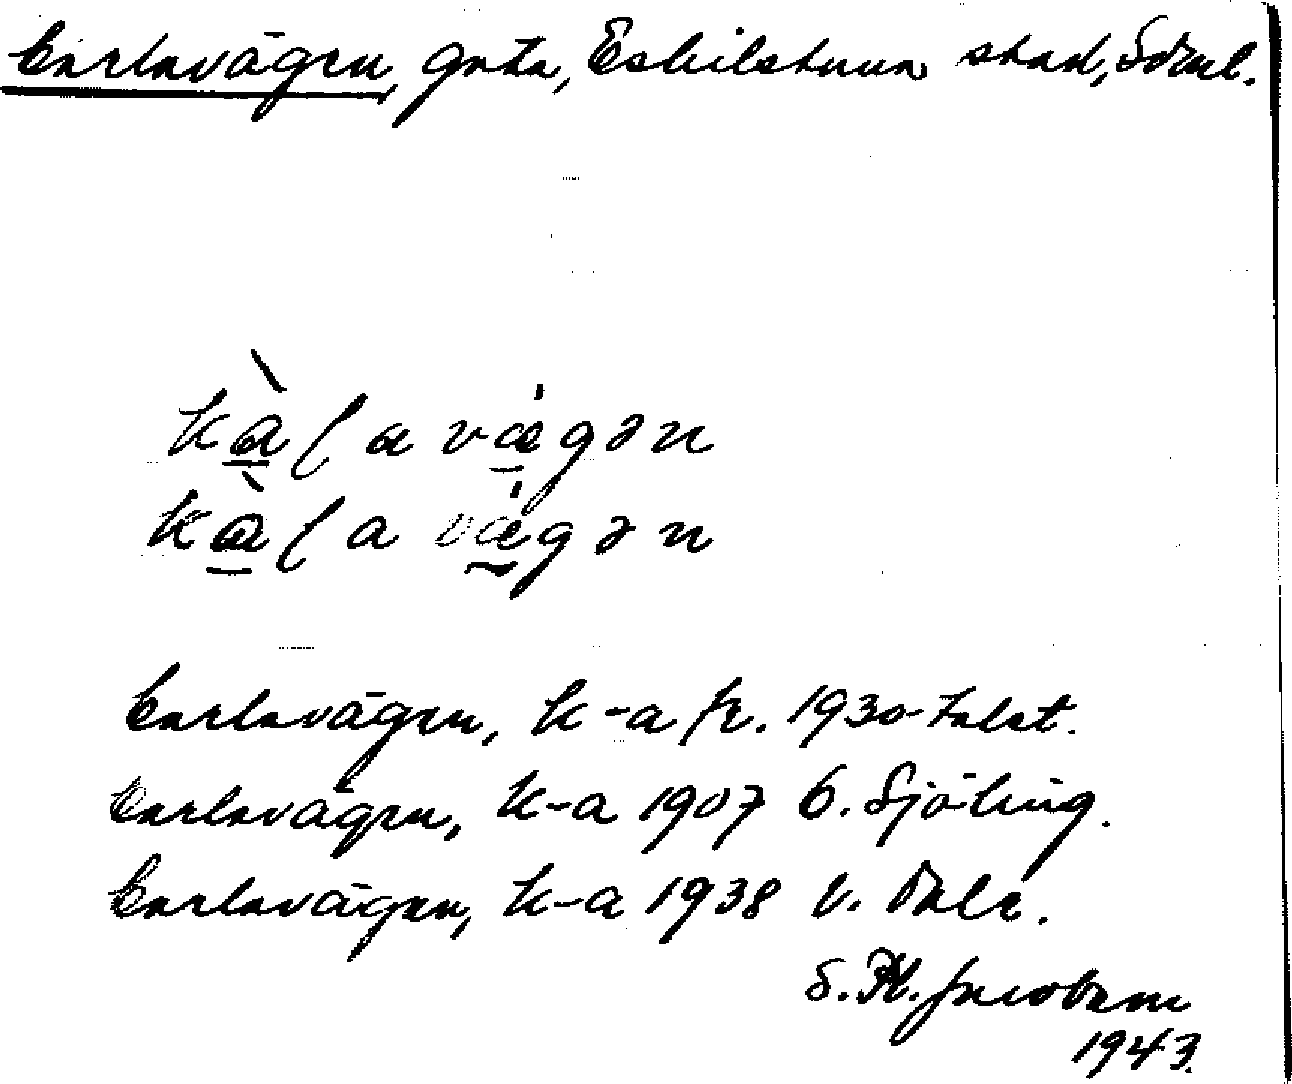 Carlavägen, gata, Eskilstuna stad, Södml.
kàɭavǽgən
kàɭavǽgən
Carlavägen, k-a fr. 1930-talet.
Carlavägen, k-a 1907 C. Sjöling.
Carlavägen, k-a 1938 V. Dale.
S. Pl. Jacobson
1943.